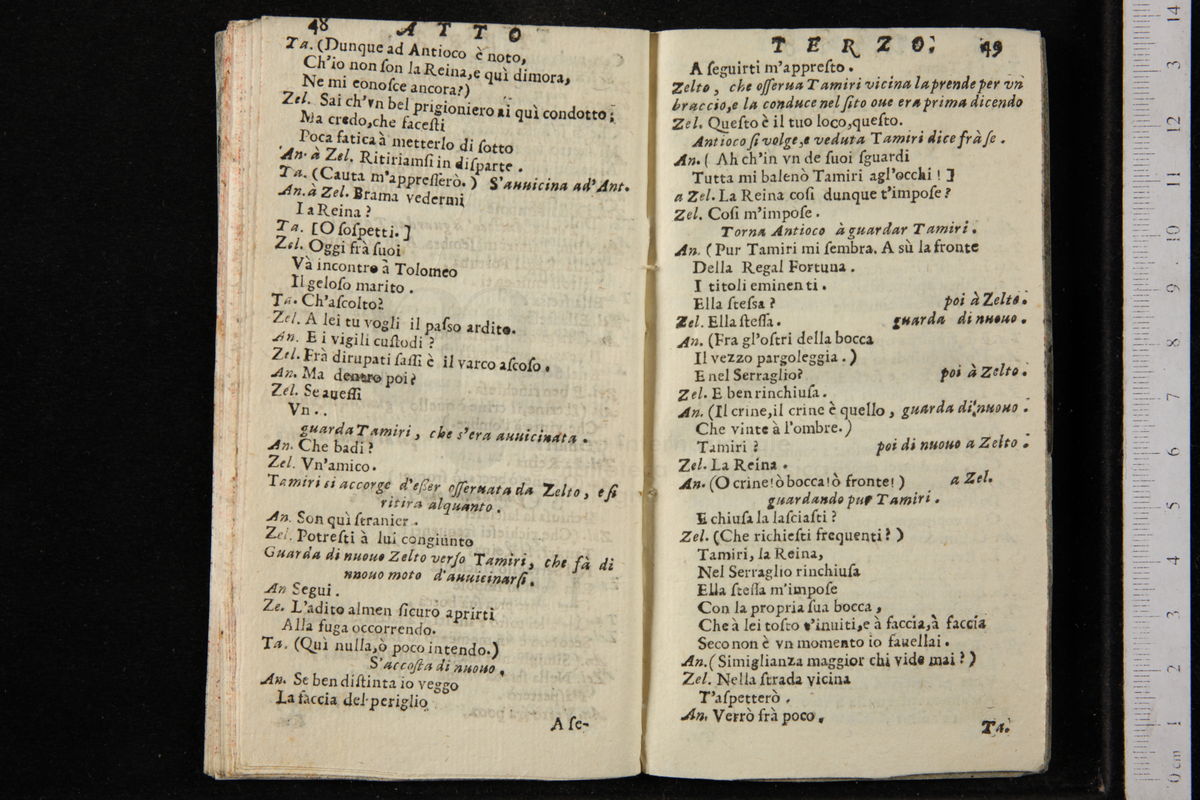 48 ATTO
Ta. (Dunque ad Antioco è noto,
Ch'io non ſon la Reina,e quì dimora,
Ne mi eonoſce ancora?)
Zel. Sai ch'vn bel prigioniero ai quì condotto;
Ma credo,che faceſti
Poca fatica à metterlo di ſotto
An. à Zel. Ritiriamſi in diſparte.
Ta. (Cauta m'appreſſerò.) S'auuicina ad'Ant.
An. à Zel. Brama vedermi
La Reina?
Ta. [O ſoſpetti.]
Zel. Oggi frà ſuoi
Và incontro à Tolomeo
Il geloſo marito.
Ta. Ch'aſcolto?
Zel. A lei tu vogli il paſſo ardito.
An. E i vigili cuſtodi?
Zel. Frà dirupati ſaſſi è il varco aſcoſo.
An. Ma dentro poi?
Zel. Se aueſſi
Vn..
guarda Tamiri, che s'era auuicinata.
An. Che badi?
Zel. Vn'amico.
Tamiri si accorge d'eſſer oſſeruata da Zelto, e ſi
ritira alquanto.
An. Son quì ſtranier.
Zel. Potreſti à lui congiunto
Guarda di nuouo Zelto verſo Tamiri, che fà di
nnouo moto d'auuicinarſi.
An Segui.
Ze. L'adito almen ſicuro aprirti
Alla fuga occorrendo.
Ta. (Quì nulla,ò poco intendo.)
S'accoſta di nuouo.
An. Se ben diſtinta io veggo
La faccia del periglio
A ſe-
TERZO. 49
A ſeguirti m'appreſto.
Zelto, che oſſerua Tamiri vicina la prende per vn
braccio,e la conduce nel ſito oue era prima dicendo
Zel. Queſto è il tuo loco,queſto.
Antioco ſi volge,e veduta Tamiri dice frà ſe.
An. ( Ah ch'in vn de ſuoi ſguardi
Tutta mi balenò Tamiri agl'occhi! ]
a Zel. La Reina coſi dunque t'impoſe?
Zel. Coſi m'impoſe.
Torna Antioco à guardar Tamiri.
An. (Pur Tamiri mi ſembra. A sù la fronte
Della Regal Fortuna.
I titoli eminenti.
Ella ſteſsa? poi à Zelto.
Zel. Ella ſteſſa. guarda di nuouo.
An. (Fra gl'oſtri della bocca
Il vezzo pargoleggia.)
E nel Serraglio? poi à Zelto.
Zel. E ben rinchiuſa.
An. (Il crine,il crine è quello, guarda di nuouo.
Che vinte à l'ombre.)
Tamiri? poi di nuouo a Zelto.
Zel. La Reina.
An. (O crine!ò bocca!ò fronte!) a Zel.
guardando pur Tamiri.
E chiuſa la laſciaſti?
Zel. (Che richieſti frequenti?)
Tamiri, la Reina,
Nel Serraglio rinchiuſa
Ella ſteſſa m'impoſe
Con la propria ſua bocca,
Che à lei toſto t'inuiti,e à faccia,à faccia
Seco non è vn momento io fauellai.
An. (Simiglianza maggior chi vide mai?)
Zel. Nella ſtrada vicina
T'aſpetterò.
An. Verrò frà poco.
Ta.